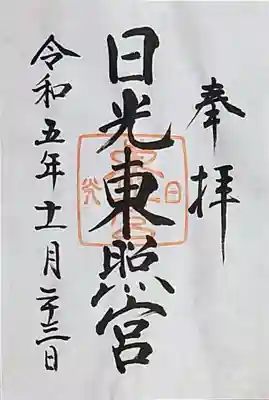 奉拝
日光東照宮
令和五年十一月二十三日